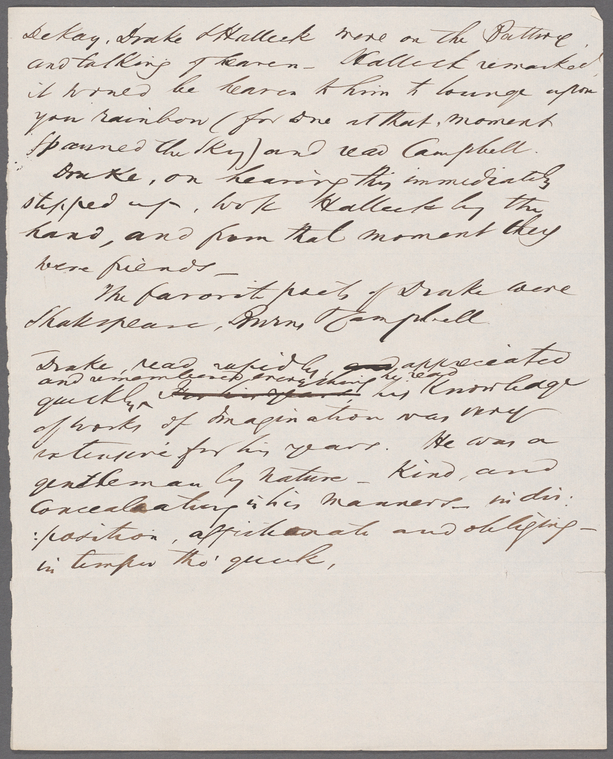 DeKay, Drake & Halleck were on the Battery,
and talking of heaven – Halleck remarked,
it would be heaven to him to lounge upon
yon rainbow (for one at that moment
spanned the sky) and read Campbell.
Drake, on hearing this immediately
stepped up, took Halleck by the
hand, and from that moment they
were friends –
The favorite poets of Drake were
Shakspeare, Burns & Campbell
Drake, read rapidly, and appreciated
and remembered everything he read
quickly, For his years his Knowledge
of works of imagination was very
intensive for his years. He was a
gentleman by nature – Kind, and
in his manners – in dis:
:position, affectionate and obliging –
in temper tho' quick,